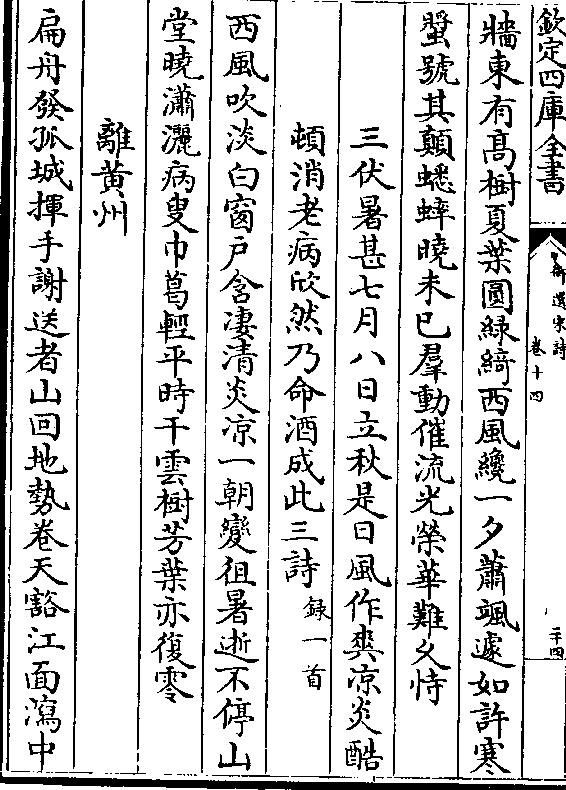 欽定四庫全書
御選宋詩
卷十四
二十四
牆東有高樹夏葉圓綠綺西風纔一夕蕭颯遽如許寒
螿號其顛蟋蟀曉未已羣動催流光榮華難久恃
三伏暑甚七月八日立秋是日風作爽凉炎酷
頓消老病欣然乃命酒成此三詩 錄一首
西風吹淡白窗戶含凄清炎凉一朝變徂暑逝不停山
堂曉瀟灑病叟巾葛輕平時干雲樹芳葉亦復零
離黃州
扁舟發孤城揮手謝送者山回地勢卷天豁江面瀉中